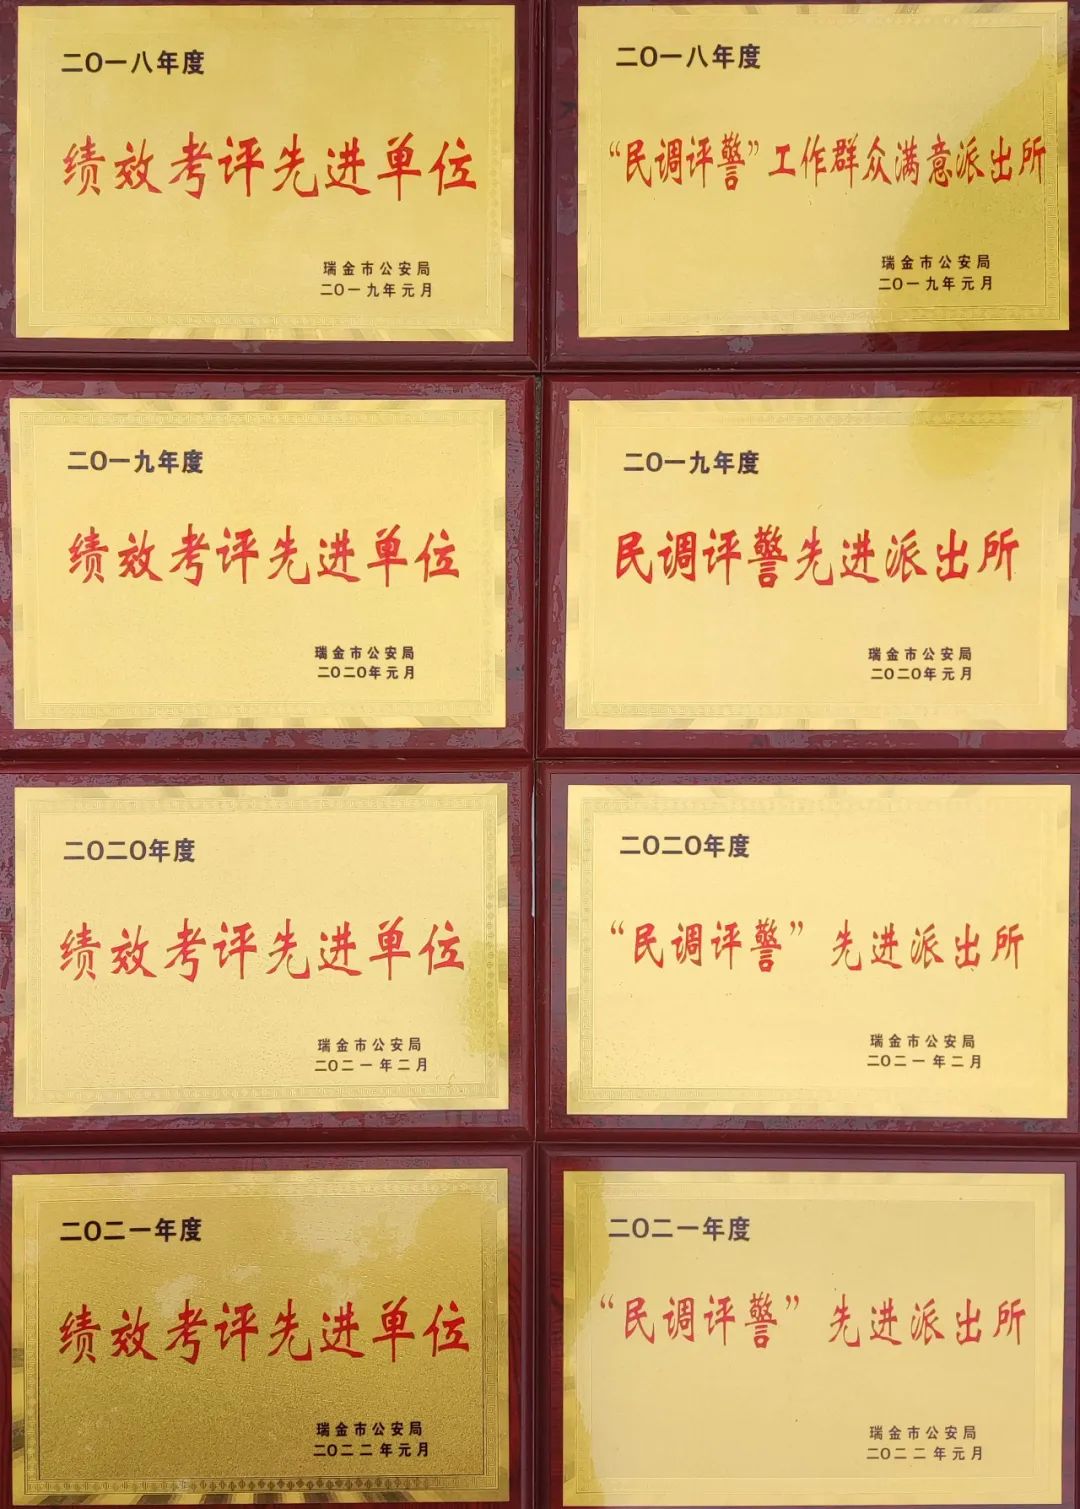 二〇一八年度
绩效考评先进单位
瑞金市公安局
二〇一九年元月
二〇一八年度
“民调评警”工作群众满意派出所
瑞金市公安局
二〇一九年元月
二〇一九年度
绩效考评先进单位
瑞金市公安局
二〇二〇年元月
二〇一九年度
民调评警先进派出所
瑞金市公安局
二〇二〇年元月
二〇二〇年度
绩效考评先进单位
瑞金市公安局
二〇二一年二月
二〇二〇年度
“民调评警” 先进派出所
瑞金市公安局
二〇二一年二月
二〇二一年度
绩效考评先进单位
瑞金市公安局
二〇二二年元月
二〇二一年度
“民调评警” 先进派出所
瑞金市公安局
二〇二二年元月